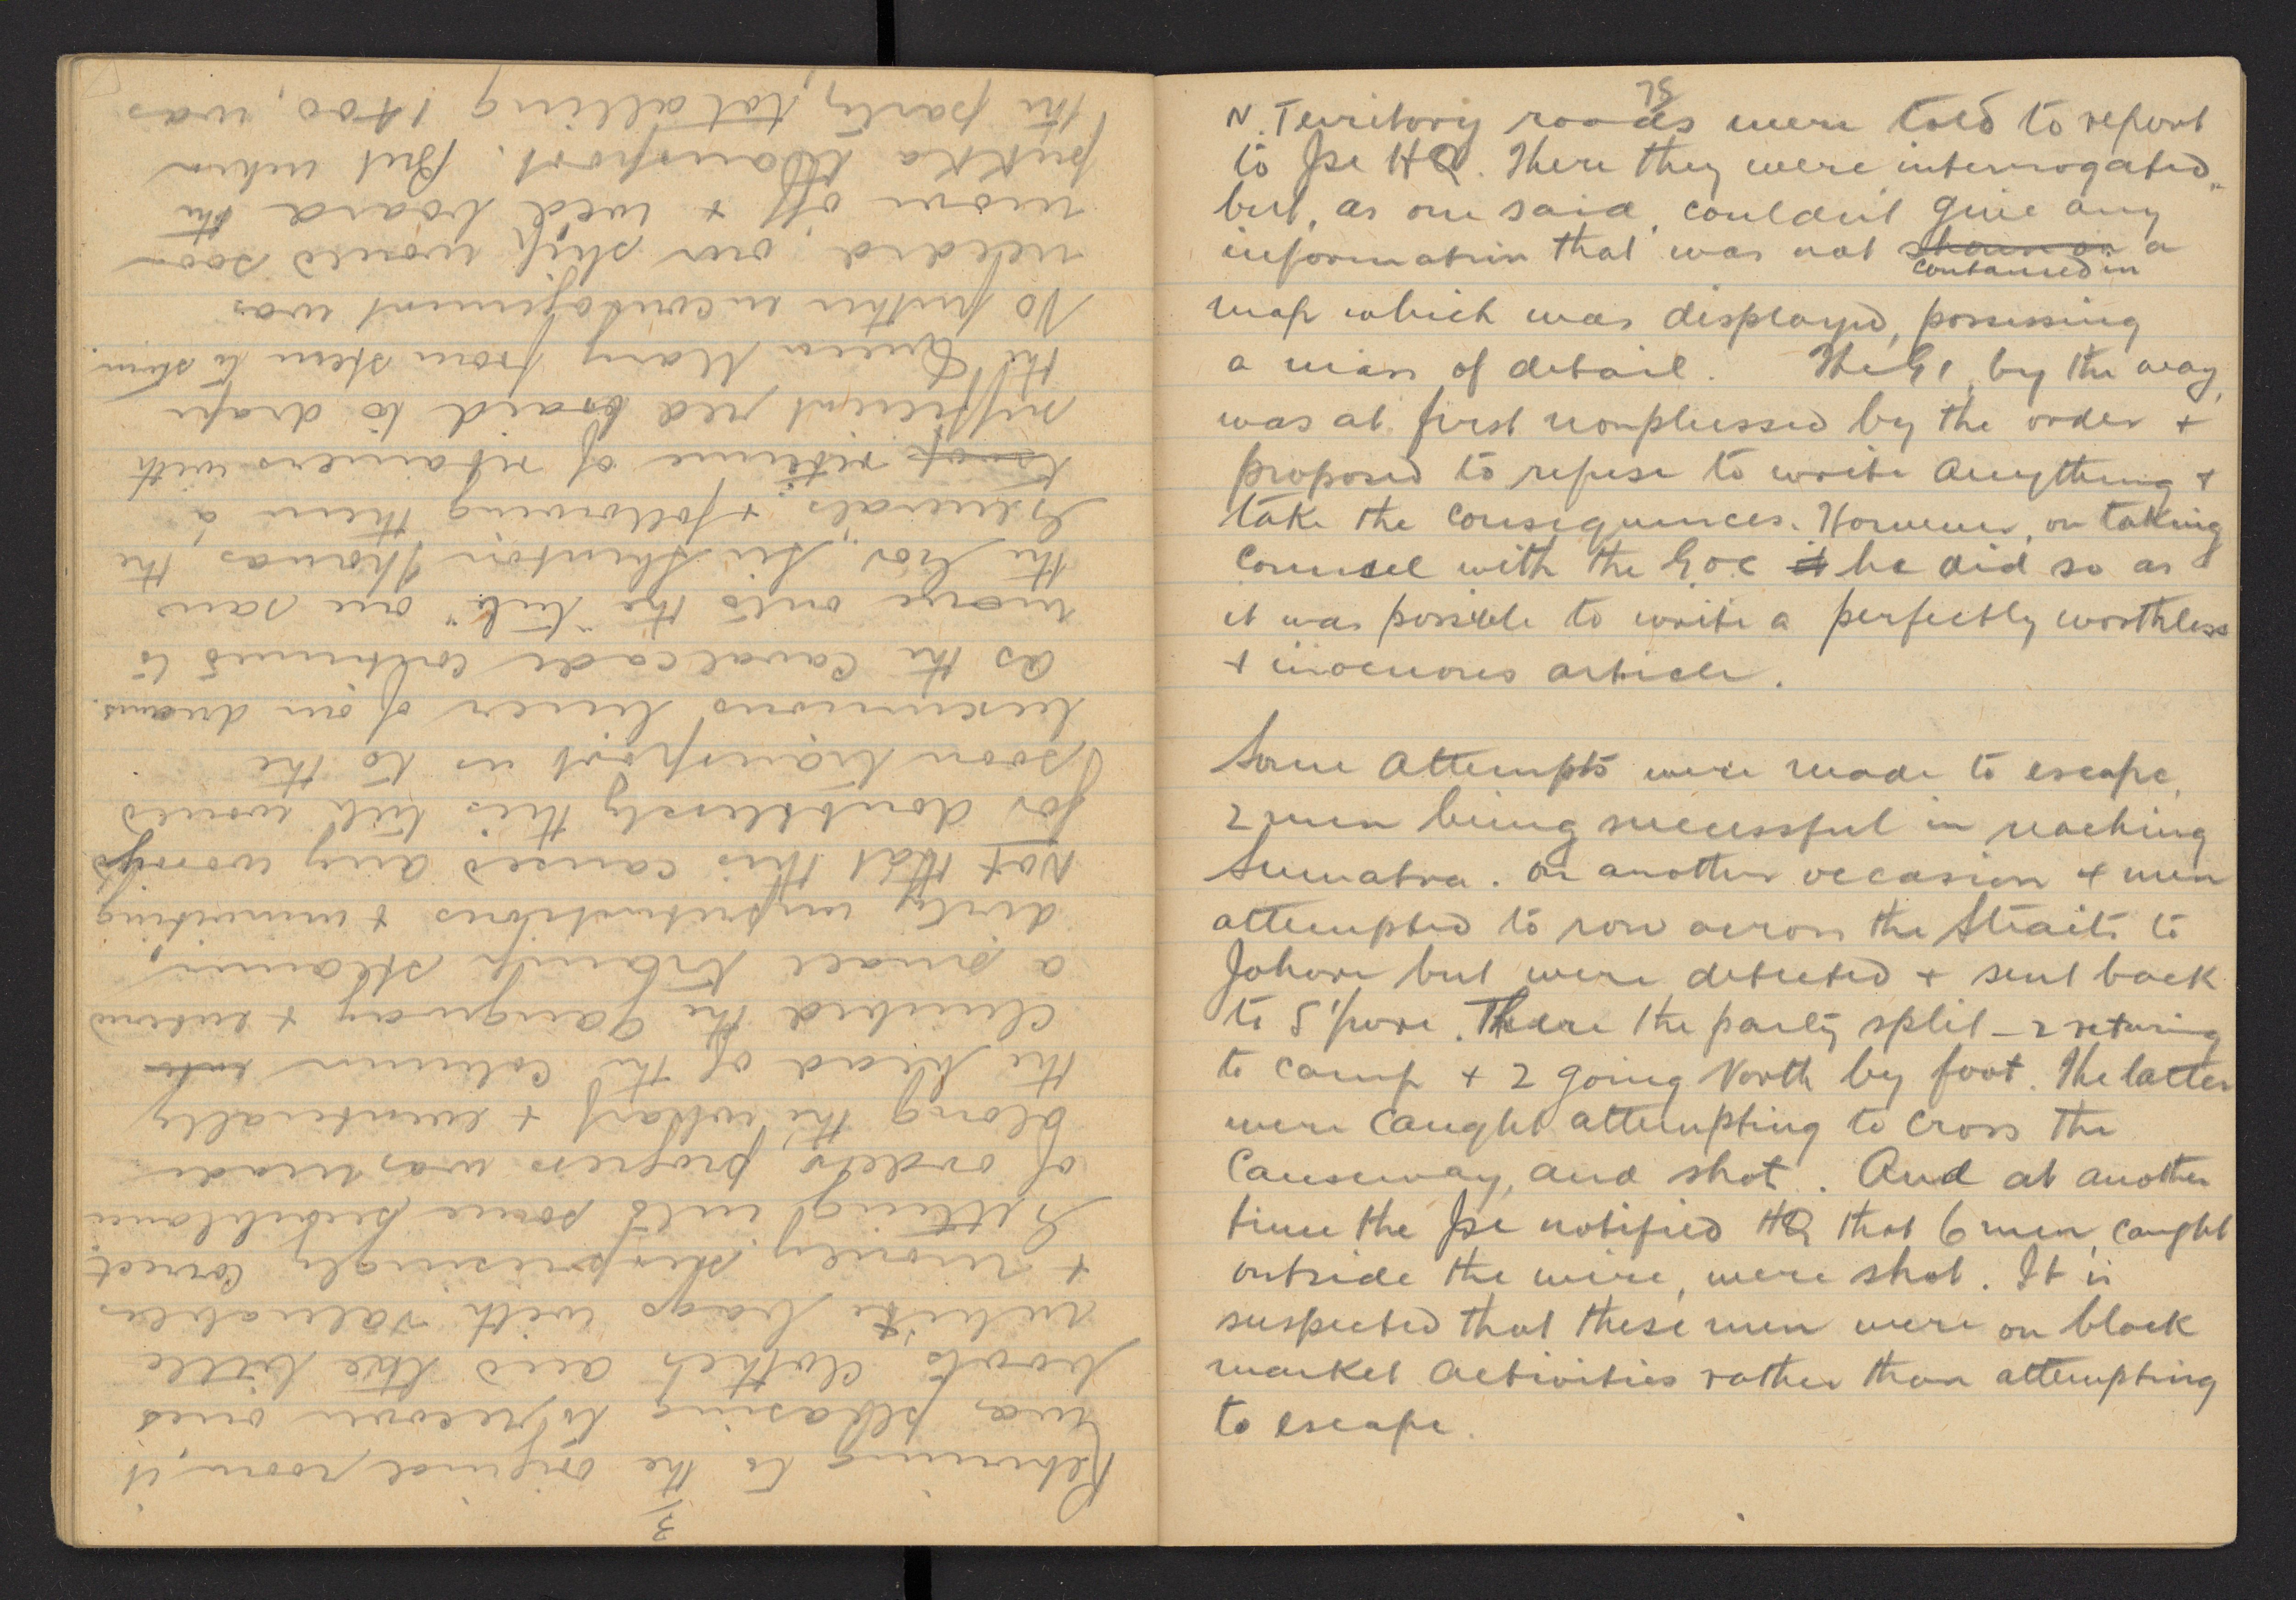 3
Returning to the original room, it
was pleasing to recover ones
boots, clothes and the little
white bags with valuables
+ money, surprisingly correct.
Getting into some semblance
of order, progress was made
along the wharf + eventually
the head of the column into
climbed the gangway + entered
a small tramp steamer,
dirty unpretentious + uninviting
Not that this caused any worrys
for doubtlessly this tub would
soon transport us to the
luxurious liner of our dreams.
As the cavalcade continued to
move onto the "tub" one saw
the Gov, Sir Shenton Thomas the
Generals + following them a
troop retinue of retainers with
sufficient red braid to drape
the Queen Mary from stem to stern.
No further encouragement was
needed, our ship would soon
move off + we'd board the
pukka transport. But when
the party, totalling 1400, was
75
N. Territory roads were told to report
to Jse HQ. There they were interrogated
but, as one said, couldn't give any
information that was not shown on a
contained in
map which was displayed, possessing
a mass of detail. The G1, by the way,
was at first nonplussed by the order +
proposed to refuse to write anything +
take the consequences. However, on taking
counsel with the G.O.C he did so as
it was possible to write a perfectly worthless
+ inocuous article.
Some attempts were made to escape,
2 men being successful in reaching
Sumatra. On another occasion 4 men
attempted to row across the Straits to
Johore but were detected + sent back
to S'pore. There the party split - 2 returing
to camp + 2 going North by foot. The latter
were caught attempting to cross the
Causeway, and shot. And at another
time the Jse notified HQ that 6 men, caught
outside the wire, were shot. It is
suspected that these men were on black
market activities rather than attempting
to escape.